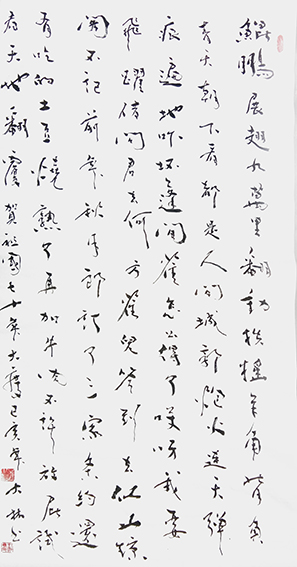 鯤鵬展翅九萬里翻動扶搖羊角背負
青天朝下看都是人间城郭炮火连天弹
痕遍地吓坏蓬间雀怎么得了哎呀我要
飛躍借问君去何方雀兒答到去仙山瓊
阁不记前年秋月郎订了三家条约還
有吃的土豆燒熟了再加牛肉不许放屁試
看天地翻覆 贺祖國七十年大慶己亥年